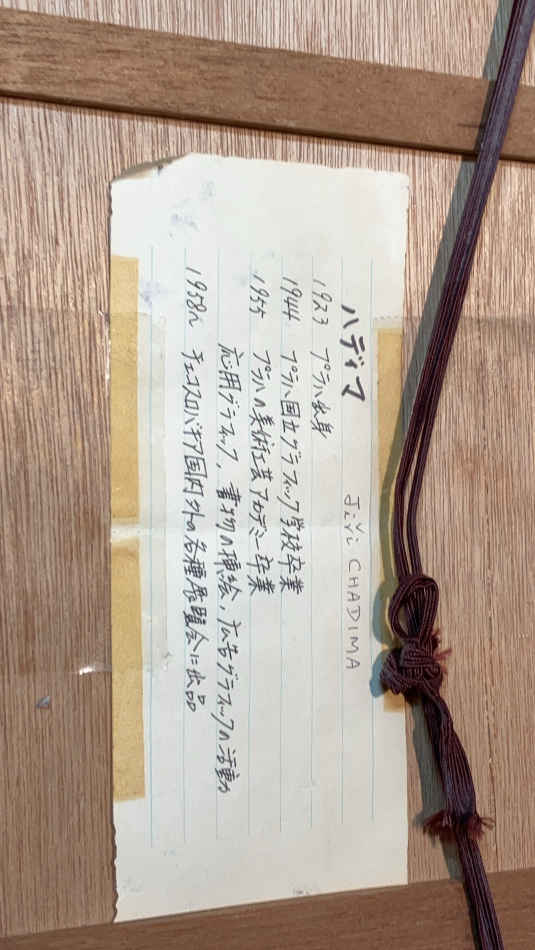 ハディマ JiVi CHADIMA
1923 プラハ出身
1944 プラハ国立グラフィック学校卒業
1955 プラハの美術工芸アカデミー卒業
応用グラフィック、書物の挿絵、広告グラフィックの活動
1958〜 チェコスロバキア国内外の各種展覧会に出品